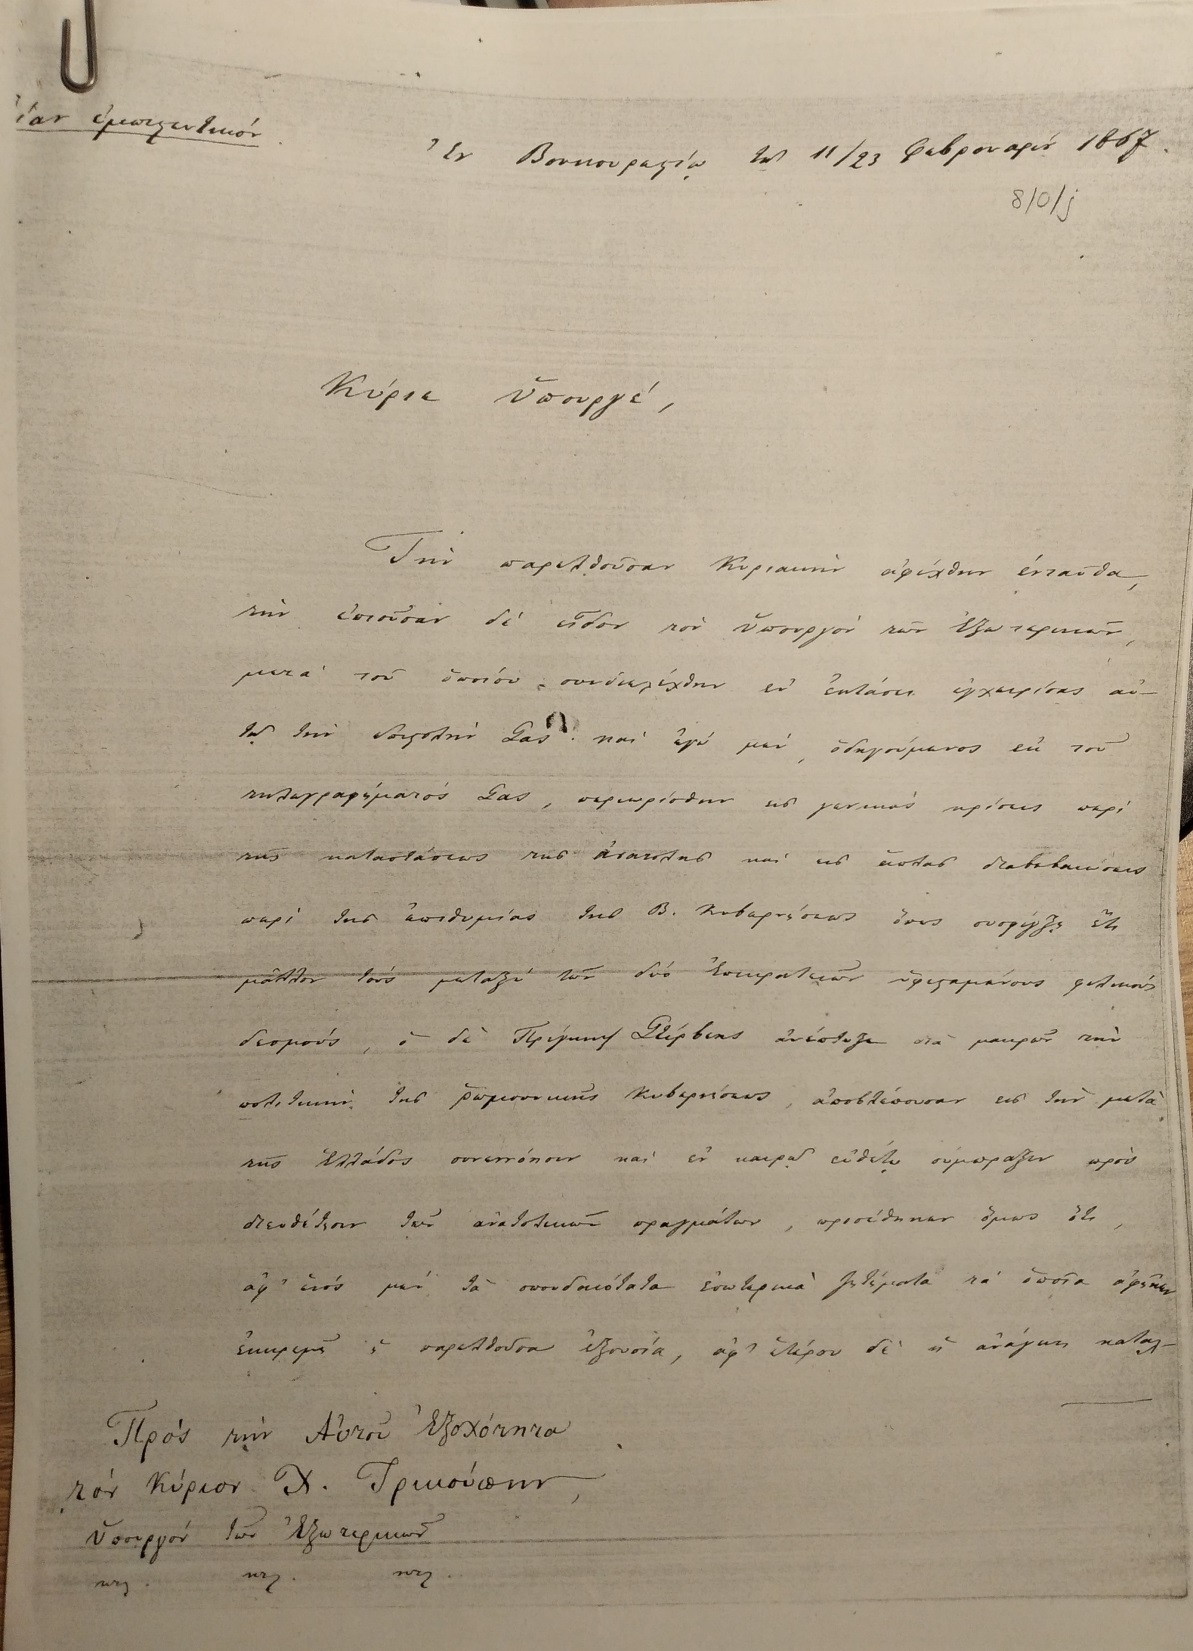 ίαν ἐμπιστευτικόν
Ἐν Βουκουρεστίῳ τῇ 11/23 Φεβρουαρίου 1867.
8/0/j
Κύριε Ὑπουργέ,
Τὴν παρελθοῦσαν Κυριακὴν ἀφίχθην ἐνταῦθα,
τὴν ἐπιοῦσαν δὲ εἶδον τὸν Ὑπουργὸν τῶν Ἐξωτερικῶν,
μετὰ τοῦ ὁποίου συνδιελέχθην ἐν ἐκτάσει ἐγχειρίσας αὐ-
τῷ τὴν ἐπιστολήν Σας. καὶ ἐγὼ μὲν, ὁδηγούμενος ἐκ τοῦ
τηλεγραφήματός Σας, περιωρίσθην εἰς γενικὰς κρίσεις περὶ
τῆς καταστάσεως τῆς Ἀνατολῆς καὶ εἰς ἁπλᾶς διαβεβαιώσεις
περὶ τῆς ἐπιθυμίας τῆς Β. Κυβερνήσεως ὅπως συσφίγξῃ ἔτι
μᾶλλον τοὺς μεταξὺ τῶν δύο Ἐπικρατειῶν ὑφισταμένους φιλικοὺς
δεσμούς, ὁ δὲ Πρίγκηψ Στίρβεης ἀνέπτυξε διὰ μακρῶν τὴν
πολιτικὴν τῆς ῥωμουνικῆς Κυβερνήσεως, ἀποβλέπουσαν εἰς τὴν μετὰ
τῆς Ἑλλάδος συνεννόησιν καὶ ἐν καιρῷ εὐθέτῳ σύμπραξιν πρὸς
διευθέτησιν τῶν ἀνατολικῶν πραγμάτων, προσέθηκεν ὅμως ὅτι,
ἀφ' ἑνὸς μὲν τὰ σπουδαιότατα ἐσωτερικὰ ζητήματα τὰ ὁποῖα ἀφῆκεν
ἐκκρεμῆ ἡ παρελθοῦσα ἐξουσία, ἀφ' ἑτέρου δὲ ἡ ἀνάγκη καταλ-
Πρὸς τὴν Αὐτοῦ Ἐξοχότητα
τὸν Κύριον Χ. Τρικούπην,
Ὑπουργὸν τῶν Ἐξωτερικῶν
κτλ. κτλ. κτλ.